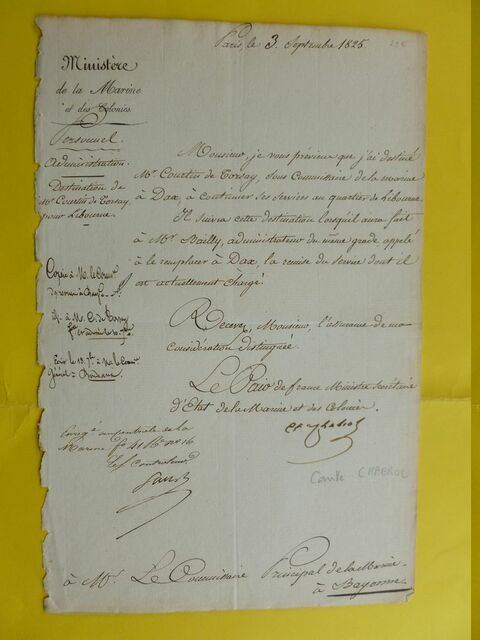 Paris, le 3 Septembre 1825.
Ministère
de la Marine
et des Colonies
Personnel
Administration
Destination de
Mr Courtin de Torsay
pour Libourne
Monsieur, je vous préviens que j'ai destiné
Mr Courtin de Torsay, sous Commissaire de la marine
à Dax, à continuer ses services au quartier de Libourne.
Il suivra cette destination lorsqu'il aura fait
à Mr Bailly, administrateur du même grade appelé
à le remplacer à Dax, la remise du service dont il
est actuellement chargé.
Copie à M. le
à M. C. de Torsay
Recevez, Monsieur, l'assurance de ma
considération distinguée.
Le Pair de france Ministre Secrétaire
d'Etat de la Marine et des Colonies.
Cte Chabrol
Comte CHABROL
au contrôle de la
Marine fo 41
Le Controleur
à Mr. Le Commissaire Principal de la Marine
à Bayonne